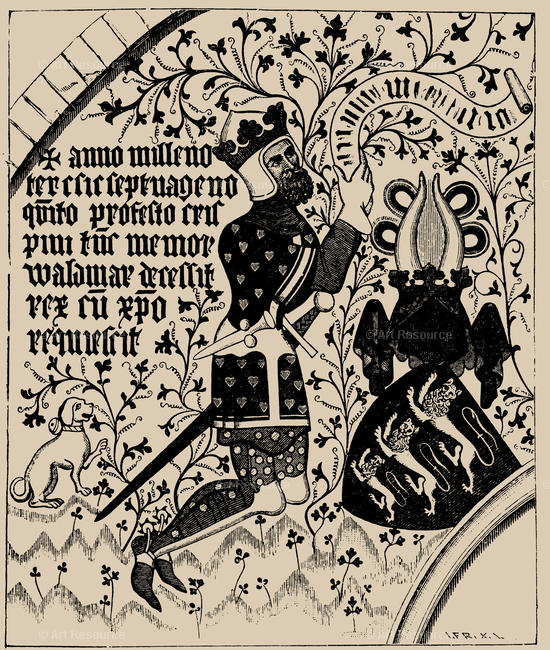 ✠ anno milleno
ter c sic septuageno
qu̅ito profesto cris
pini tu̅c memor
waldmar decessit
rex cu̅ xp̅o
requiescit
I.FR.X.L.
© Art Resource
© Art Resource
© Art Resource